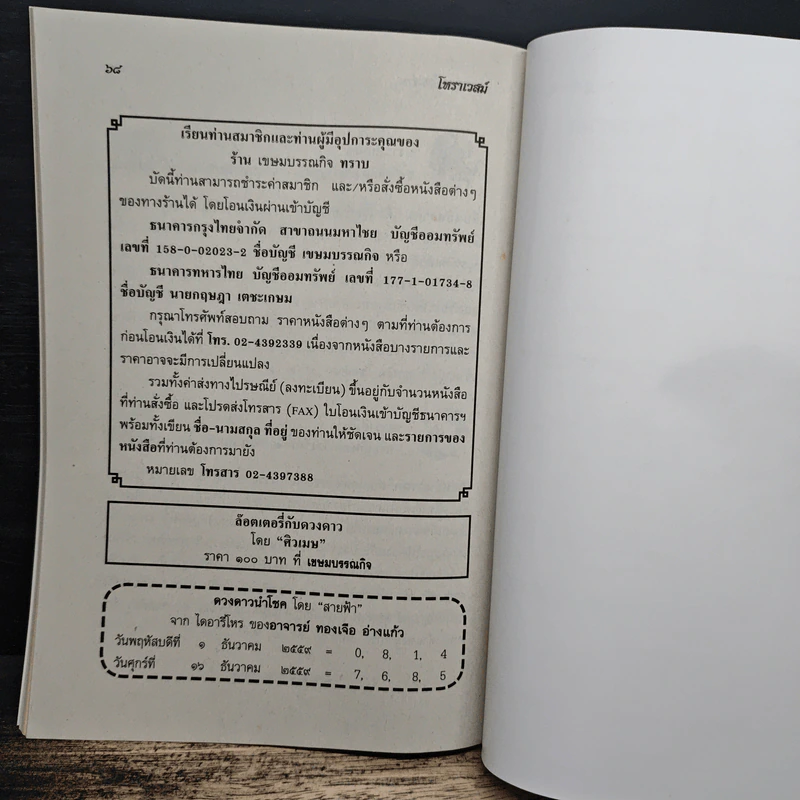 ๖๘
โหราเวสม์
เรียนท่านสมาชิกและท่านผู้มีอุปการะคุณของ
ร้าน เขษมบรรณกิจ ทราบ
บัดนี้ท่านสามารถชำระค่าสมาชิก และ/หรือสั่งซื้อหนังสือต่างๆ
ของทางร้านได้ โดยโอนเงินผ่านเข้าบัญชี
ธนาคารกรุงไทยจำกัด สาขาถนนมหาไชย บัญชีออมทรัพย์
เลขที่ 158-0-02023-2 ชื่อบัญชี เขษมบรรณกิจ หรือ
ธนาคารทหารไทย บัญชีออมทรัพย์ เลขที่ 177-1-01734-8
ชื่อบัญชี นายกฤษฎา เตชะเกษม
กรุณาโทรศัพท์สอบถาม ราคาหนังสือต่างๆ ตามที่ท่านต้องการ
ก่อนโอนเงินได้ที่ โทร. 02-4392339 เนื่องจากหนังสือบางรายการและ
ราคาอาจจะมีการเปลี่ยนแปลง
รวมทั้งค่าส่งทางไปรษณีย์ (ลงทะเบียน) ขึ้นอยู่กับจำนวนหนังสือ
ที่ท่านสั่งซื้อ และโปรดส่งโทรสาร (FAX) ใบโอนเงินเข้าบัญชีธนาคารฯ
พร้อมทั้งเขียน ชื่อ-นามสกุล ที่อยู่ ของท่านให้ชัดเจน และรายการของ
หนังสือที่ท่านต้องการมายัง
หมายเลข โทรสาร 02-4397388
ล๊อตเตอรี่กับดวงดาว
โดย "ศิวเมษ"
ราคา ๑๐๐ บาท ที่ เขษมบรรณกิจ
ดวงดาวนำโชค โดย "สายฟ้า"
จาก ไดอารี่โหร ของอาจารย์ ทองเจือ อ่างแก้ว
วันพฤหัสบดีที่ ๑ ธันวาคม ๒๕๕๙ = 0, 8, 1, 4
วันศุกร์ที่ ๑๖ ธันวาคม ๒๕๕๙ = 7, 6, 8, 5